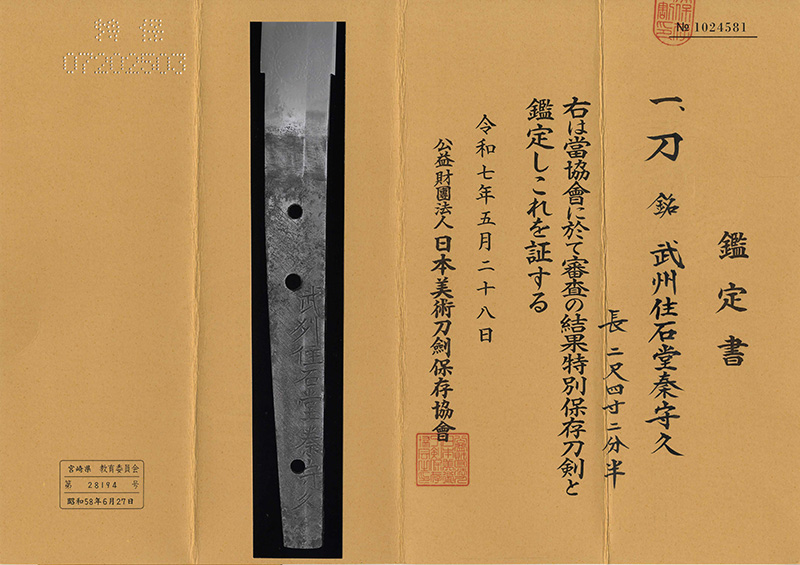 № 1024581
鑑定書
一、刀 銘 武州住石堂秦守久
長 二尺四寸二分半
右は當協會に於て審査の結果特別保存刀剣と
鑑定しこれを証する
令和七年五月二十八日
公益財團法人 日本美術刀劍保存協會
武州住石堂秦守久
特保
07202503
宮崎県 教育委員会
第 28194 号
昭和58年6月27日